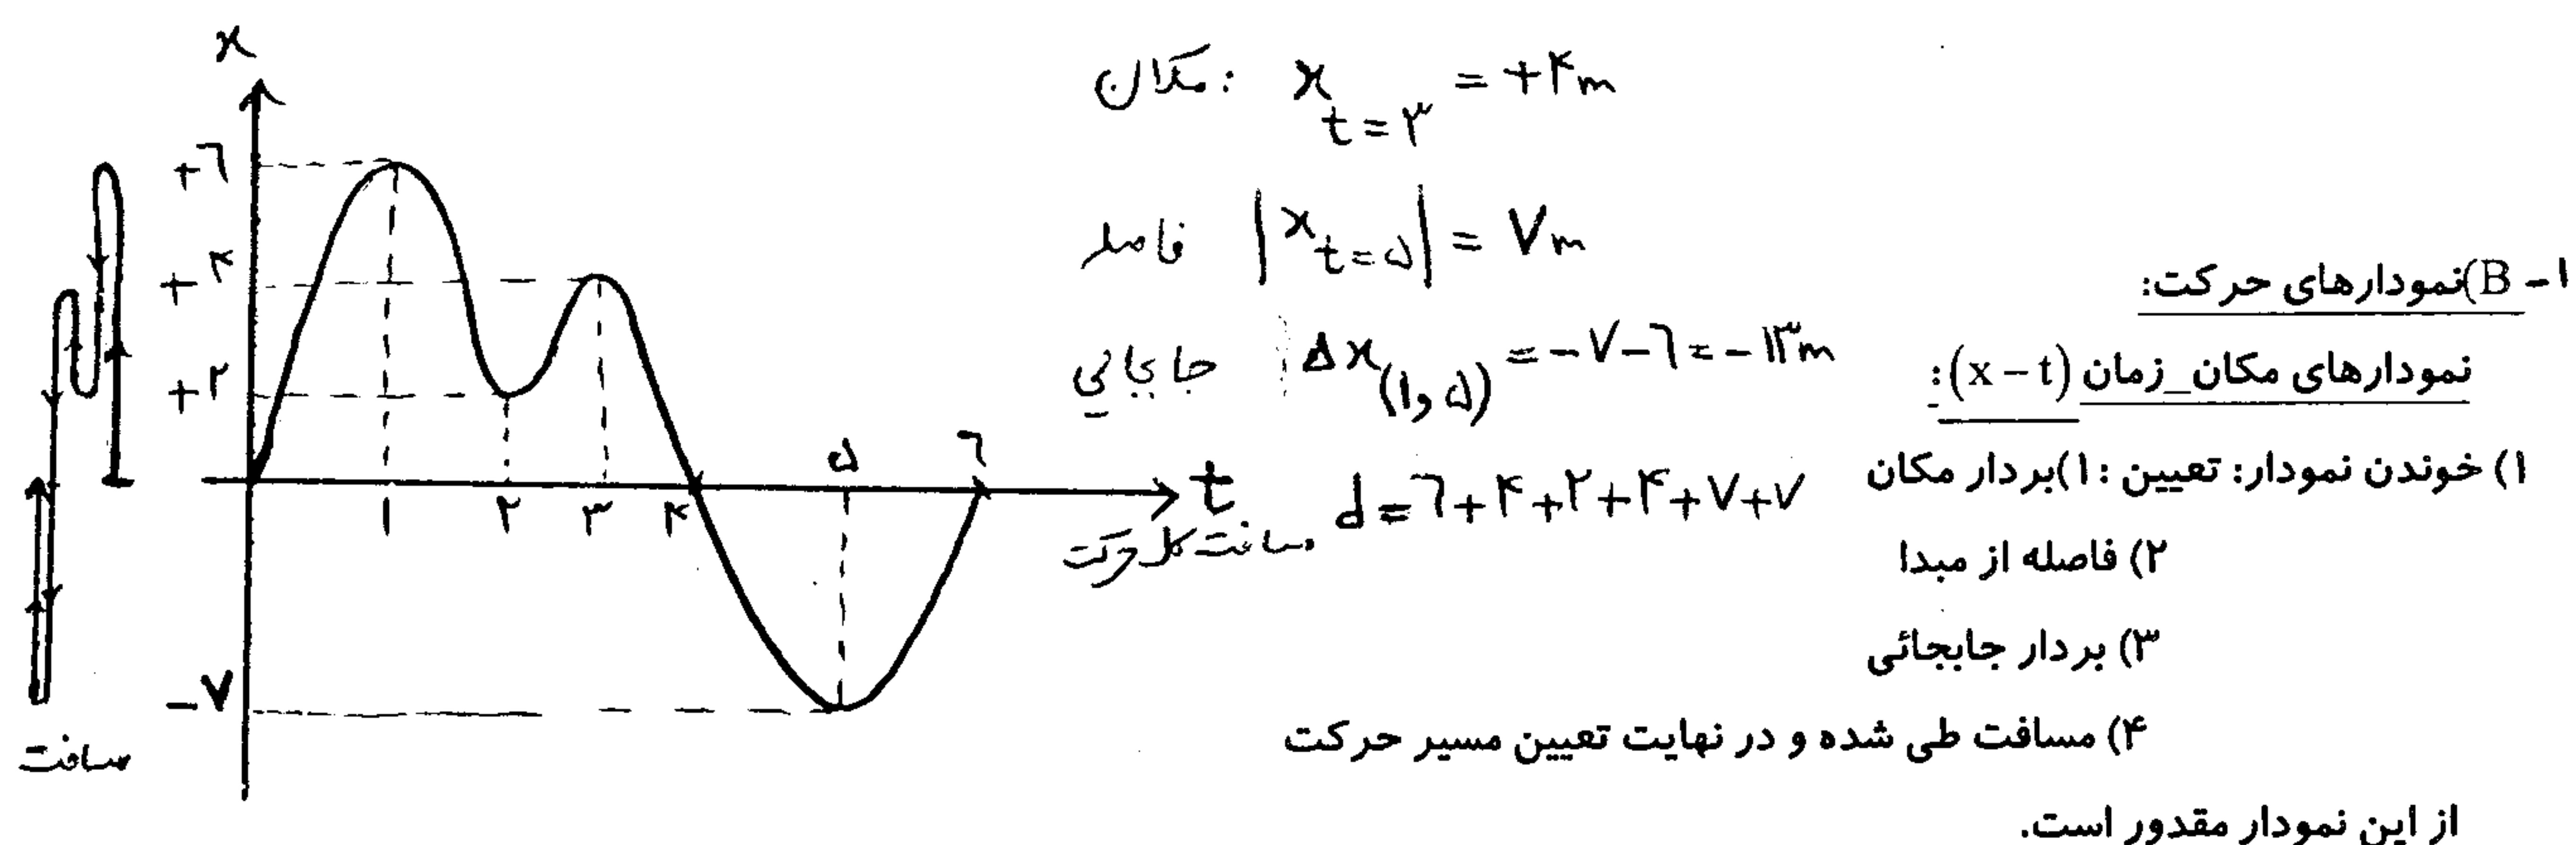 ۱- B)نمودارهای حرکت:
نمودارهای مکان_زمان (x – t):
۱) خوندن نمودار: تعیین :۱)بردار مکان
۲) فاصله از مبدا
۳) بردار جابجائی
۴) مسافت طی شده و در نهایت تعیین مسیر حرکت
از این نمودار مقدور است.
مکان: x t=۳ = +۴m
فاصله |x t=۵| = ۷m
جابجایی Δx (۱,۵) = -۷-۶ = -۱۳m
مسافت کل حرکت d = ۶+۴+۲+۴+۷+۷
x
+۶
+۴
+۲
-۷
۱ ۲ ۳ ۴ ۵ ۶ t
مسافت